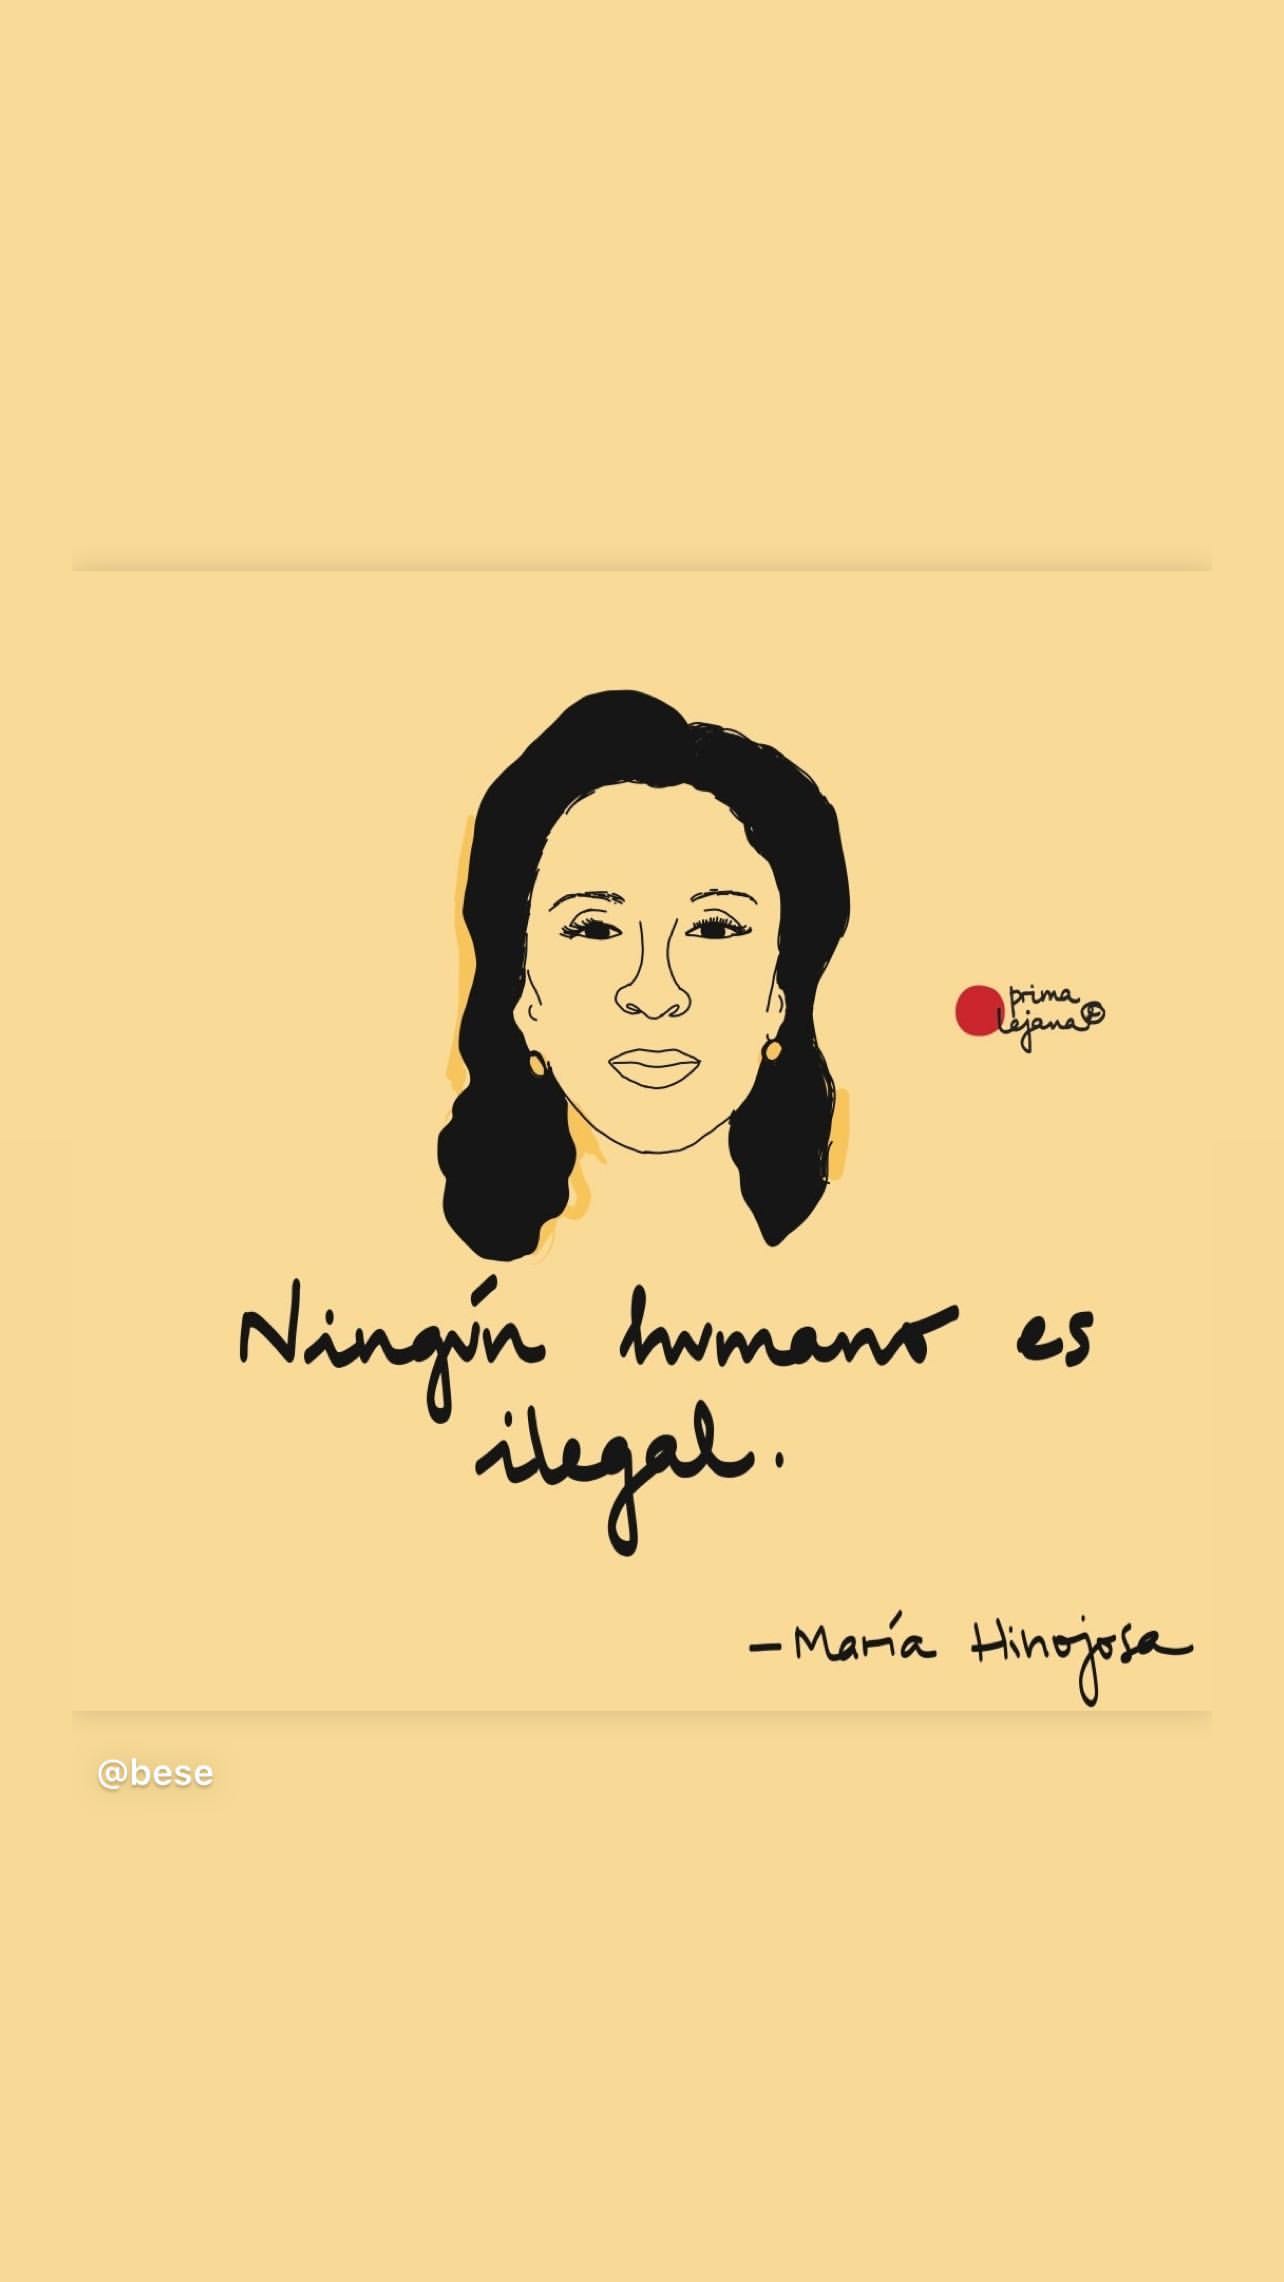 prima
lejana®
Ningún humano es
ilegal.
—María Hinojosa
@bese